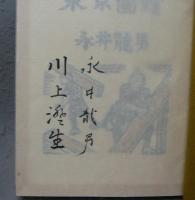 東京圖繪
永井龍男
永井龍男
川上澄生